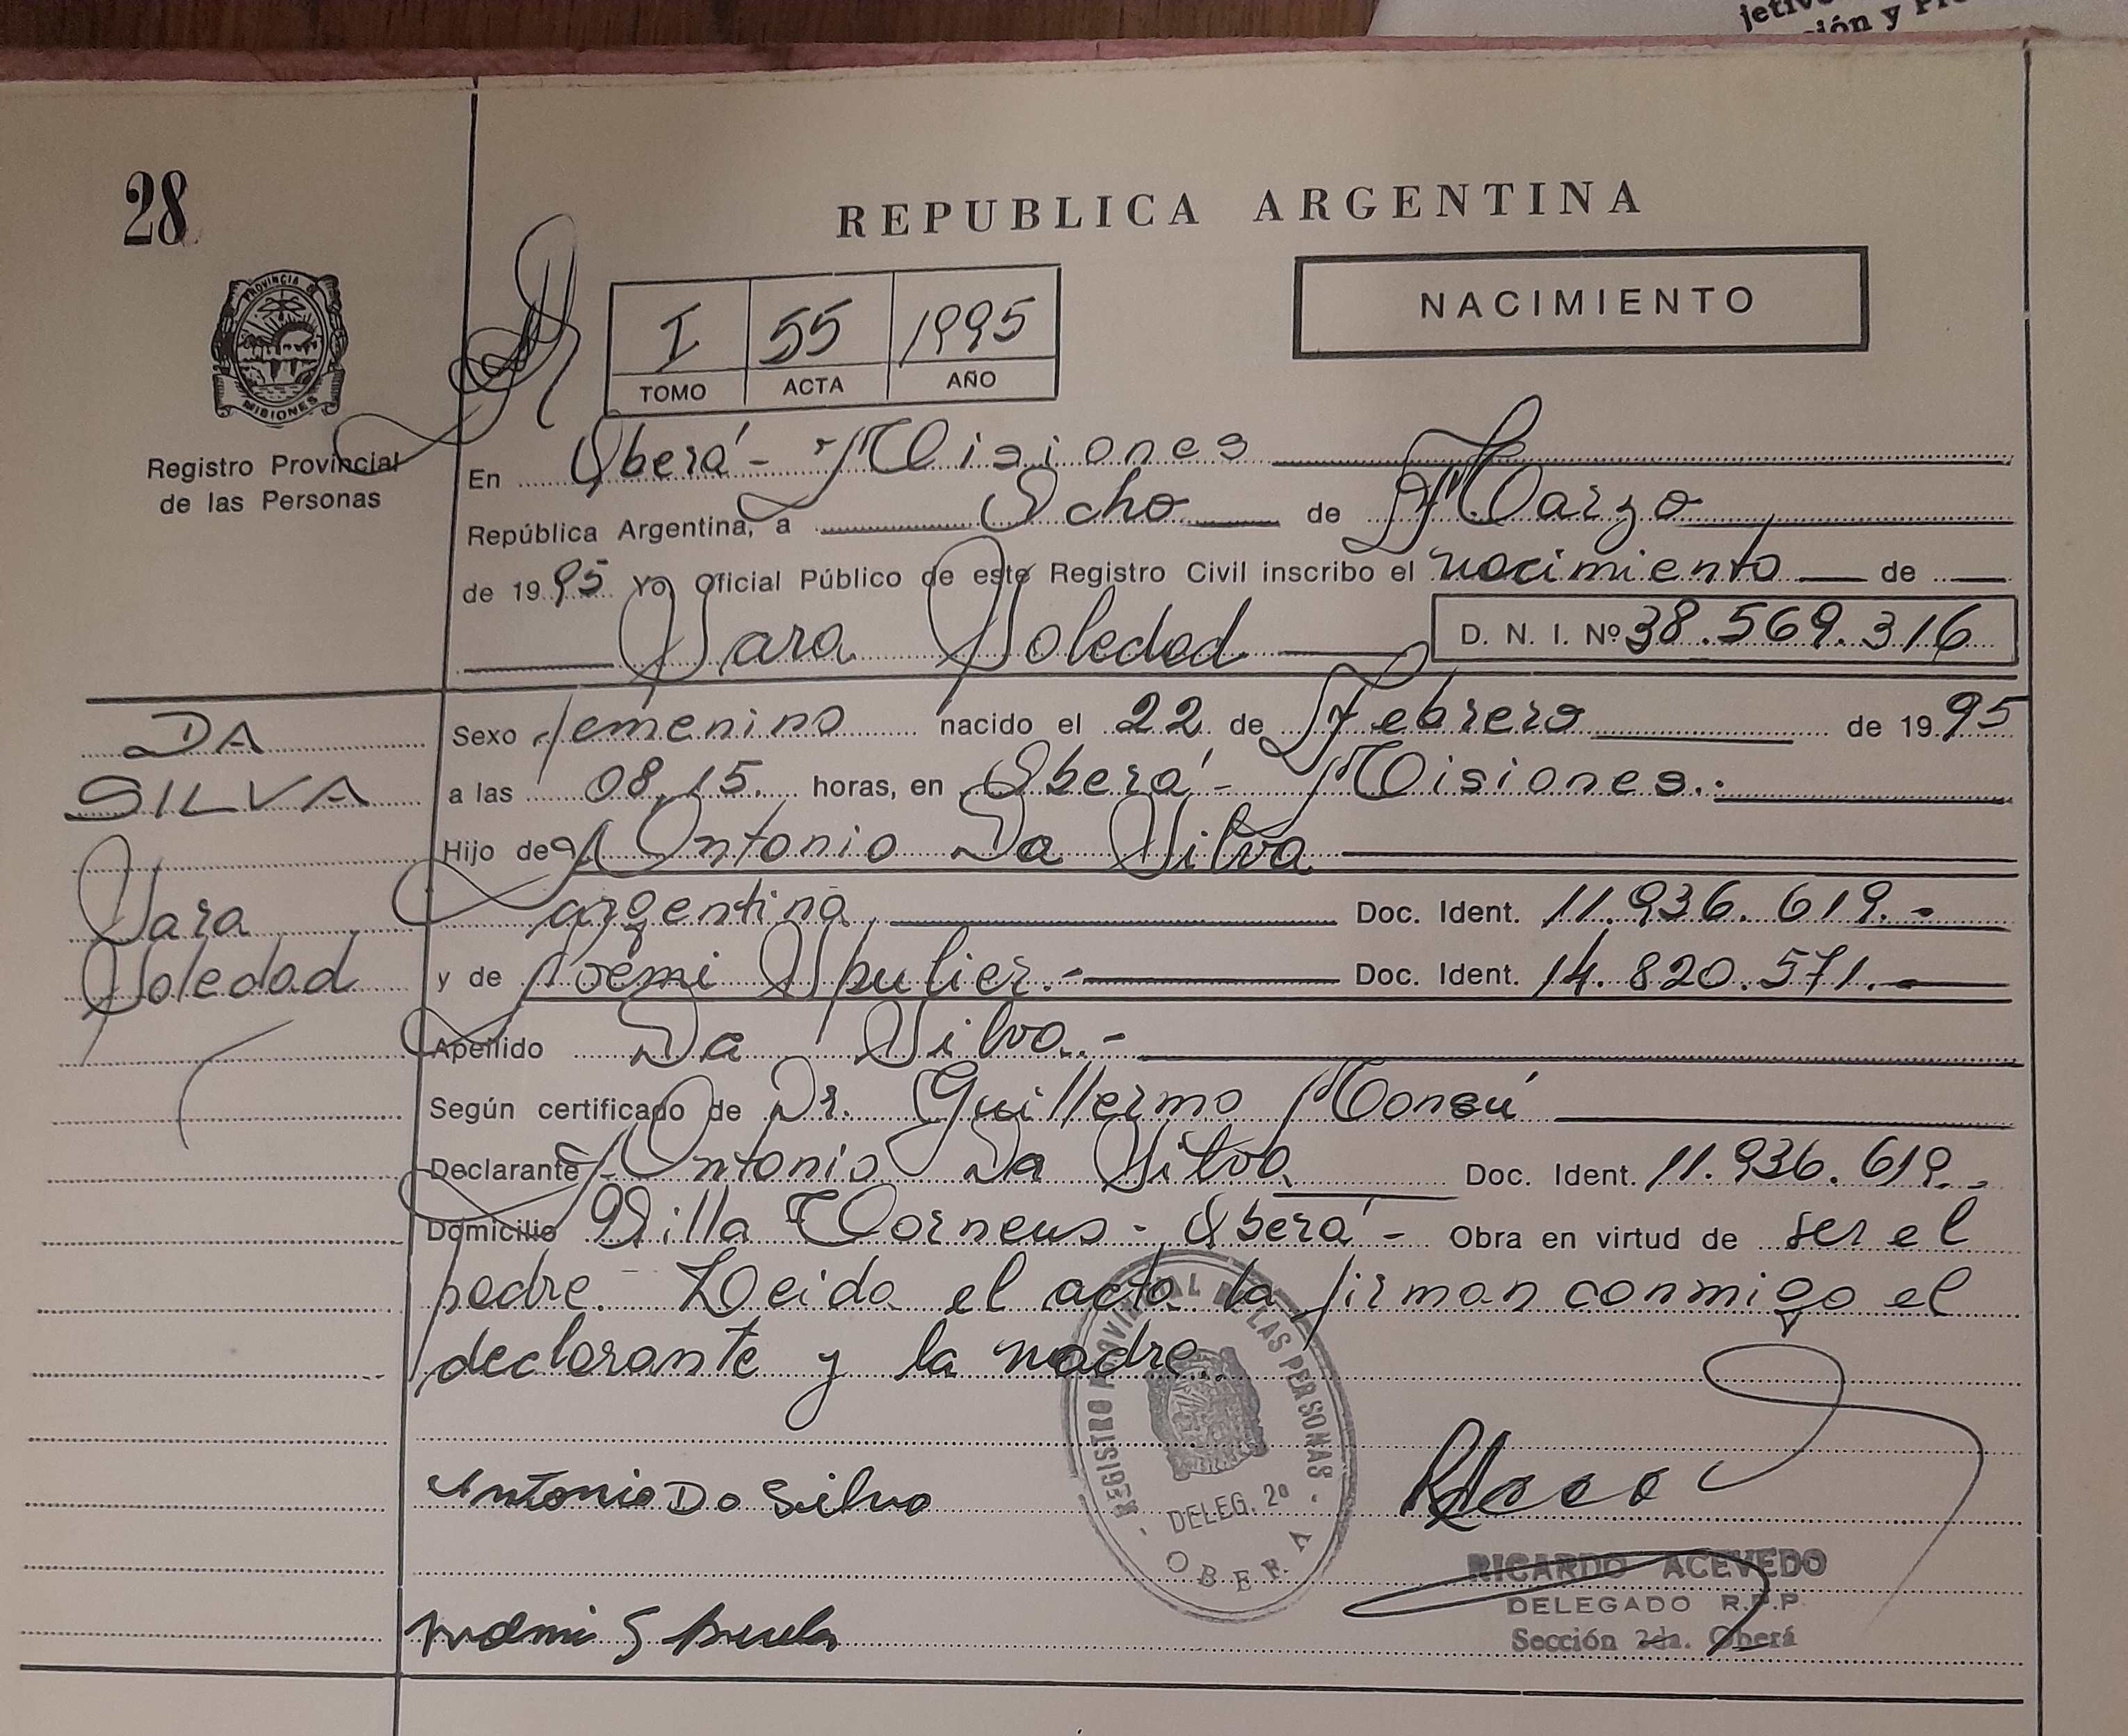 jetiv
ción y Pr
28
REPUBLICA ARGENTINA
NACIMIENTO
I 55 1995
TOMO ACTA AÑO
PROVINCIA D
MISIONES
Registro Provincial
de las Personas
En Oberá - Misiones
República Argentina, a Ocho de Marzo
de 1995 Yo, Oficial Público de este Registro Civil inscribo el nacimiento de
Sara Soledad D. N. I. Nº 38.569.316
DA
SILVA
Sara
Soledad
Sexo femenino nacido el 22 de Febrero de 1995
a las 08.15. horas, en Oberá - Misiones.
Hijo de Antonio Da Silva
argentina Doc. Ident. 11.936.619.-
y de Noemi Spulier.- Doc. Ident. 14.820.571.-
Apellido Da Silva.-
Según certificado de Dr. Guillermo Monsú
Declarante Antonio Da Silva Doc. Ident. 11.936.619.-
Domicilio Villa Torneus - Oberá - Obra en virtud de ser el
padre. Leida el acta la firman conmigo el
declarante y la madre.
REGISTRO PROVINCIAL DE LAS PERSONAS
- DELEG. 2º -
OBERA
Antonio Da Silva
RICARDO ACEVEDO
DELEGADO R.P.P.
Sección 2da. Oberá